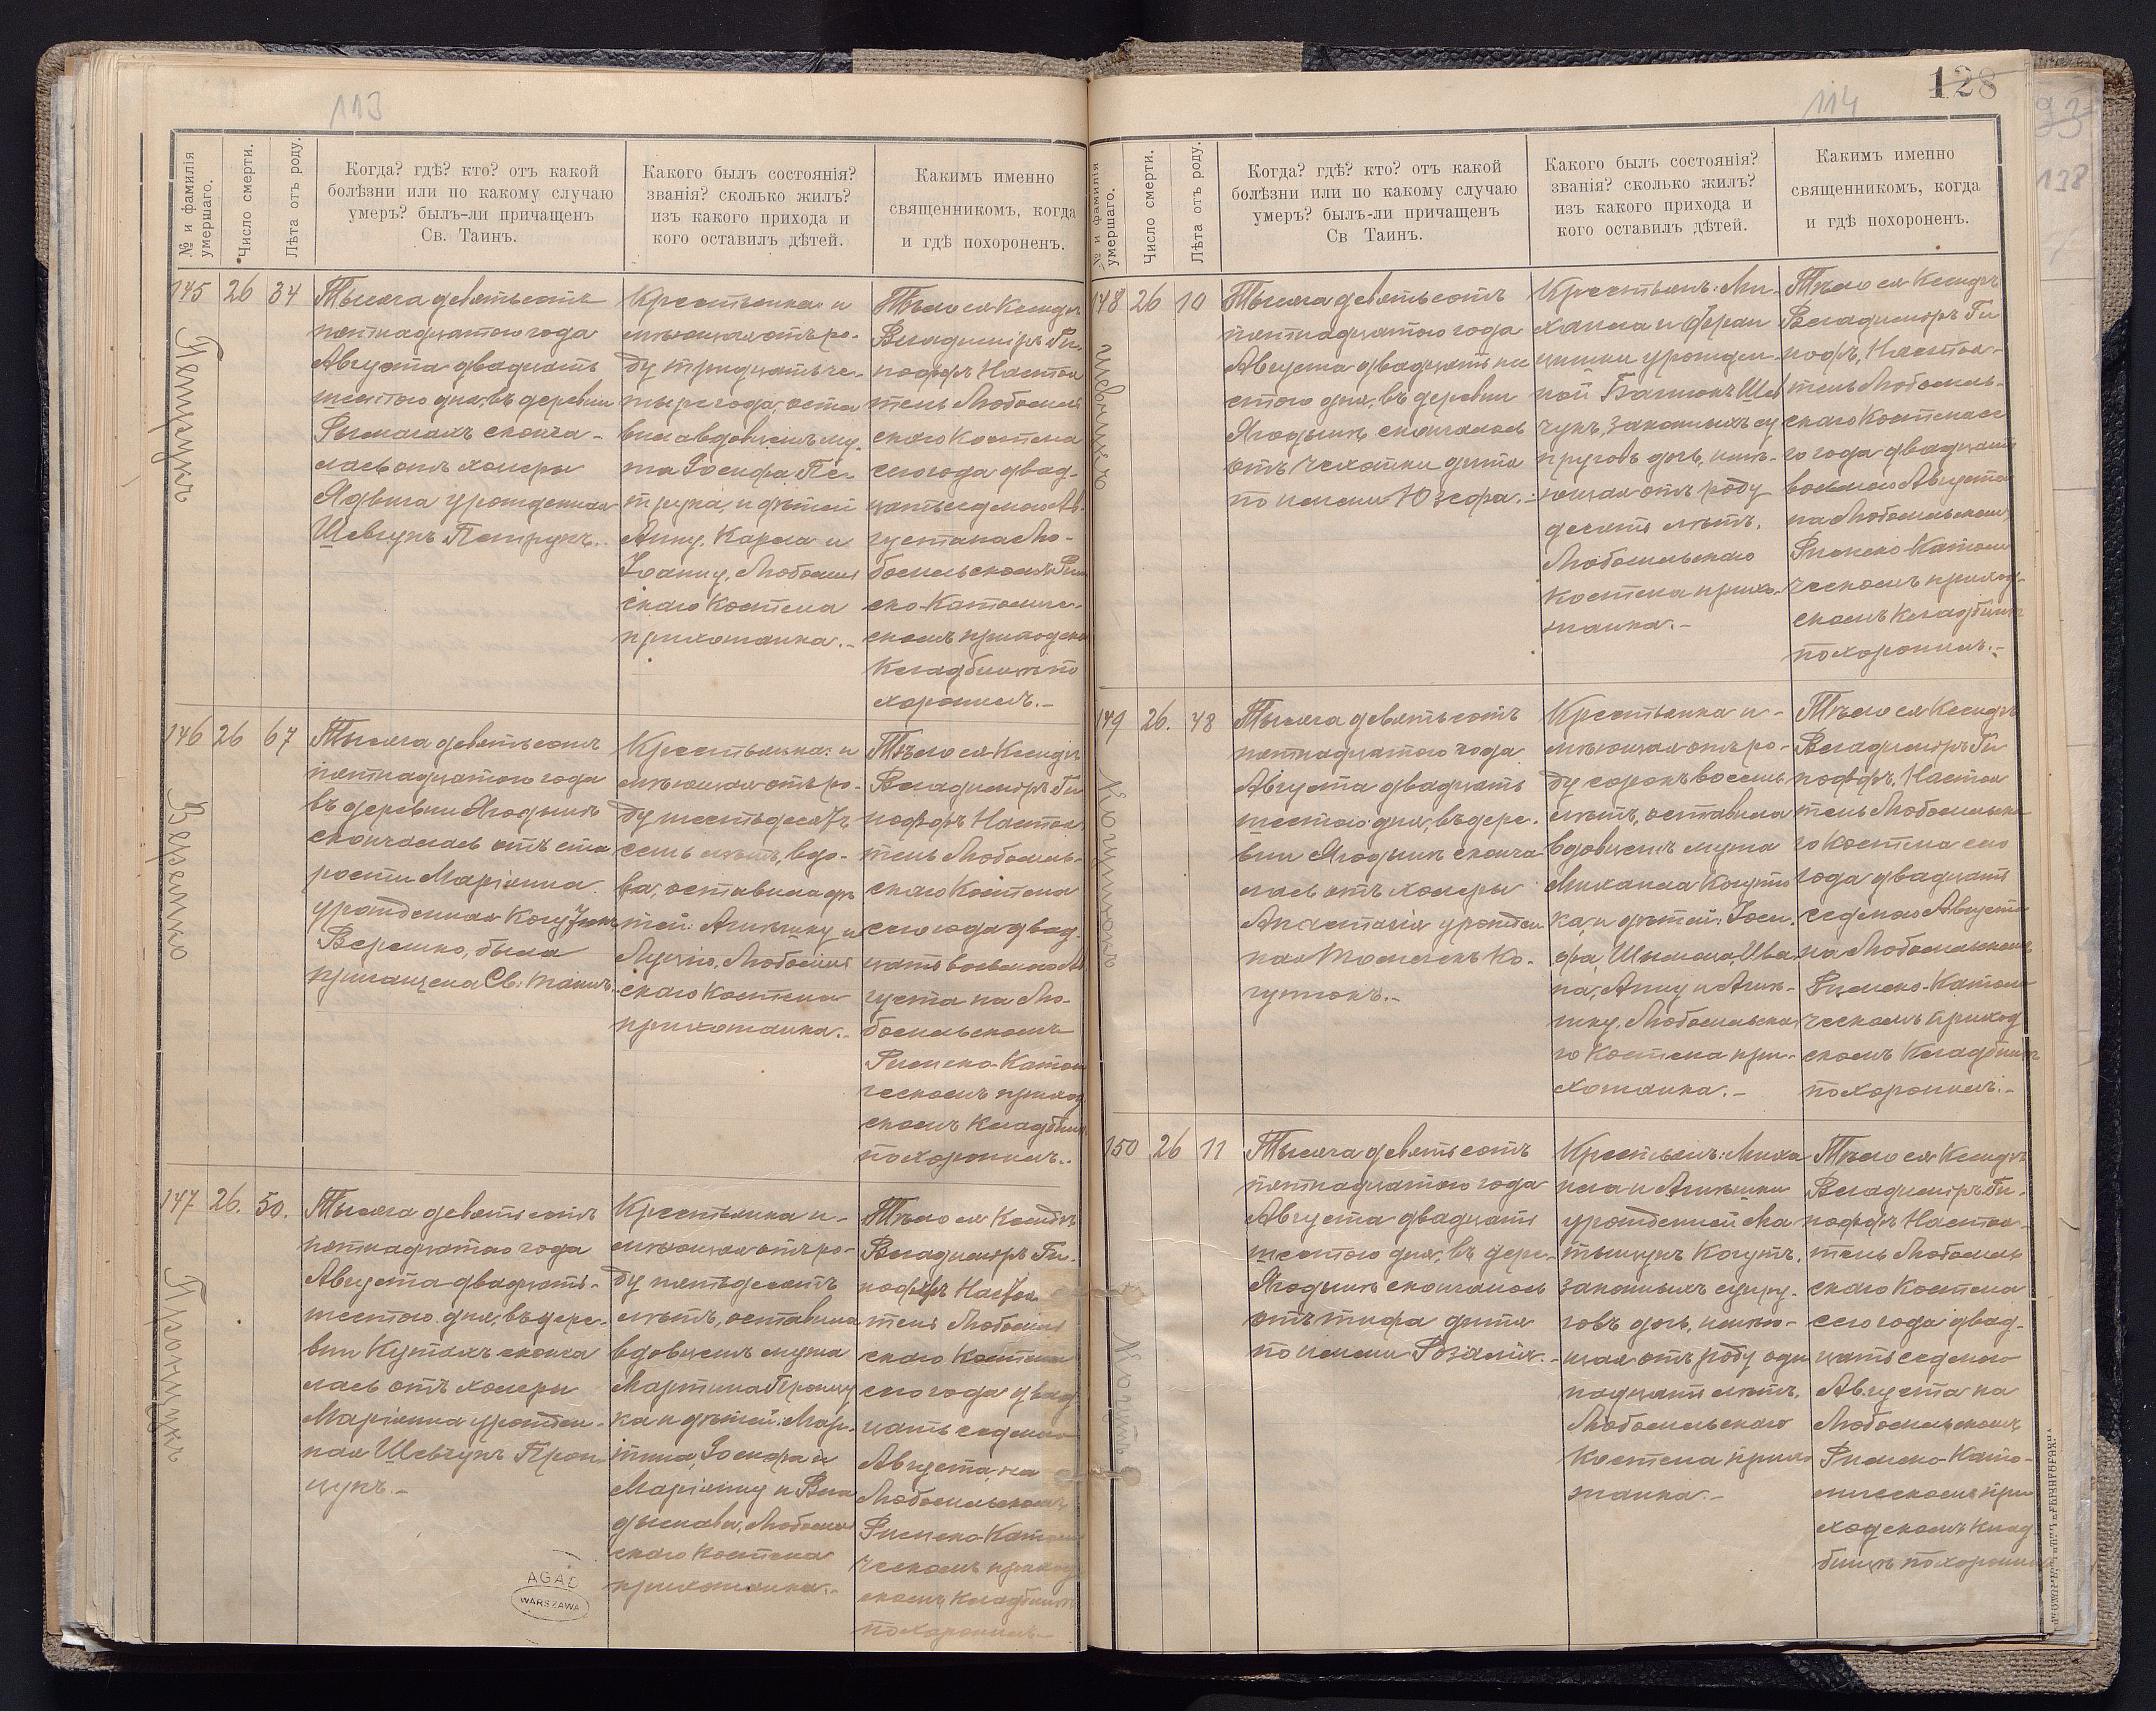 113
№ и фамилія умершаго.
Число смерти.
Лѣта отъ роду.
Когда? гдѣ? кто? отъ какой
болѣзни или по какому случаю
умеръ? былъ-ли причащенъ
Св. Таинъ.
Какого былъ состоянія?
званія? сколько жилъ?
изъ какого прихода и
кого оставилъ дѣтей.
Какимъ именно
священникомъ, когда
и гдѣ похороненъ.
145
Петрукъ
26
34
Тысяча девятьсотъ
пятнадцатого года
Августа двадцать
шестого дня, въ деревни
Рымачахъ сконча-
лась отъ холеры
Ядвига урожденная
Шевчукъ Петрукъ.
Крестьянка: и
мѣющая отъ ро-
ду тридцать че-
тыре года, оста
вила вдовцемъ му
жа Іосифа Пе-
трука, и дѣтей
Анну, Кароля и
Іоанну, Любомль
скаго Костела
прихожанка.-
Тѣло ея Ксендзъ
Владиміръ Ги
поффъ Настоя
тель Любомль
скаго Костела
сего года двад-
цать седьмого Ав-
густа на Лю-
бомльскомъ Рим
ско-Католиче-
скомъ приходско
Кладбищѣ по
хоронилъ.-
146
Веремко
26
67
Тысяча девятьсотъ
пятнадцатого года
въ деревни Ягодинъ
скончалась отъ ста
рости Маріанна
урожденная
Веремко, была
причащена Св. Таинъ.
Крестьянка: и
мѣющая отъ ро-
ду шестьдесятъ
семь лѣтъ, вдо-
ва, оставила дѣ
тей: Агнѣшку и
Луцію, Любомль
скаго Костела
прихожанка.-
Тѣло ея Ксендзъ
Владиміръ Ги
поффъ Настоя
тель Любомль-
скаго Костела
сего года двад-
цать восьмого Ав
густа на Лю-
бомльскомъ
Римско-Катол
ческомъ приход
скомъ Кладбищ
похоронилъ.-
147
26.
50.
Тысяча девятьсотъ
пятнадцатого года
Августа двадцать-
шестого дня, въ дере-
вни Кутахъ сконча
лась отъ холеры
Маріанна урожден-
ная Шевчукъ
Крестьянка и-
мѣющая отъ ро-
ду пятьдесятъ
лѣтъ, оставила
вдовцемъ мужа
Мартина
ка и дѣтей: Мар-
тина, Іосифа и
Маріанну и Вла
дыслава, Любомль
скаго Костела
прихожанка.-
Тѣло ея Ксендзъ
Владиміръ Ги-
поффъ Настоя
тель Любомль
скаго Костела
сего года двад
цать седьмого
Августа, на
Любомльскомъ
Римско-Катол
ческомъ приход
скомъ Кладбищѣ
похоронилъ.-
AGAD
WARSZAWA
114
128
138
№ и фамилія умершаго.
Число смерти.
Лѣта отъ роду.
Когда? гдѣ? кто? отъ какой
болѣзни или по какому случаю
умеръ? былъ-ли причащенъ
Св Таинъ.
Какого былъ состоянія?
званія? сколько жилъ?
изъ какого прихода и
кого оставилъ дѣтей.
Какимъ именно
священникомъ, когда
и гдѣ похороненъ.
148
26
10
Тысяча девятьсотъ
пятнадцатого года
Августа двадцать ше
стого дня, въ деревни
Ягодинъ скончалось
отъ чахотки дитя
по имени Юзефа.-
Крестьянъ: Ми-
хаила и Фран
цишки урожден-
ной Шев
чукъ, законныхъ су
пруговъ дочь, имѣ-
ющая отъ роду
десять лѣтъ,
Любомльскаго
Костела прихо-
жанка.-
Тѣло ея Ксендзъ
Владиміръ Ги
поффъ, Настоя-
тель Любомль-
скаго Костела се
го года двадцать
восьмого Августа
на Любомльском
Римско-Катол
ческомъ приход-
скомъ Кладбищѣ
похоронилъ.-
149
26.
48
Тысяча девятьсотъ
пятнадцатого года
Августа двадцать
шестого дня, въ дере-
вни Ягодинъ сконча
лась отъ холеры
Анастасія урожден
ная
Крестьянка и-
мѣющая отъ ро-
ду сорокъ восемь
лѣтъ, оставила
вдовцемъ мужа
Михаила
ка, и дѣтей: Іоси-
фа, Шымона, Ива
на, Анну и Агнѣ-
шку, Любомльска
го Костела при-
хожанка.-
Тѣло ея Ксендзъ
Владиміръ Ги
поффъ, Настоя
тель Любомльска
го Костела сего
года двадцать
седьмого Августа
на Любомльскомъ
Римско-Катол
ческомъ приход
скомъ Кладбищѣ
похоронилъ.-
150
Когутъ
26
11
Тысяча девятьсотъ
пятнадцатого года
Августа двадцать
шестого дня, въ дере-
Ягодинъ скончалось
отъ тифа дитя
по имени Розалія.-
Крестьянъ: Миха
ила и Агнѣшки
урожденной Ма
Когутъ,
законныхъ супру-
говъ дочь, имѣю-
щая отъ роду оди
надцать лѣтъ,
Любомльскаго
Костела прихо
жанка.-
Тѣло ея Ксендзъ
Владиміръ Ги-
поффъ Настоя-
тель Любомль
скаго Костела
сего года двад-
цать седьмого
Августа на
Любомльскомъ
Римско-Като-
лическомъ при
ходскомъ Клад
бищѣ похоронилъ